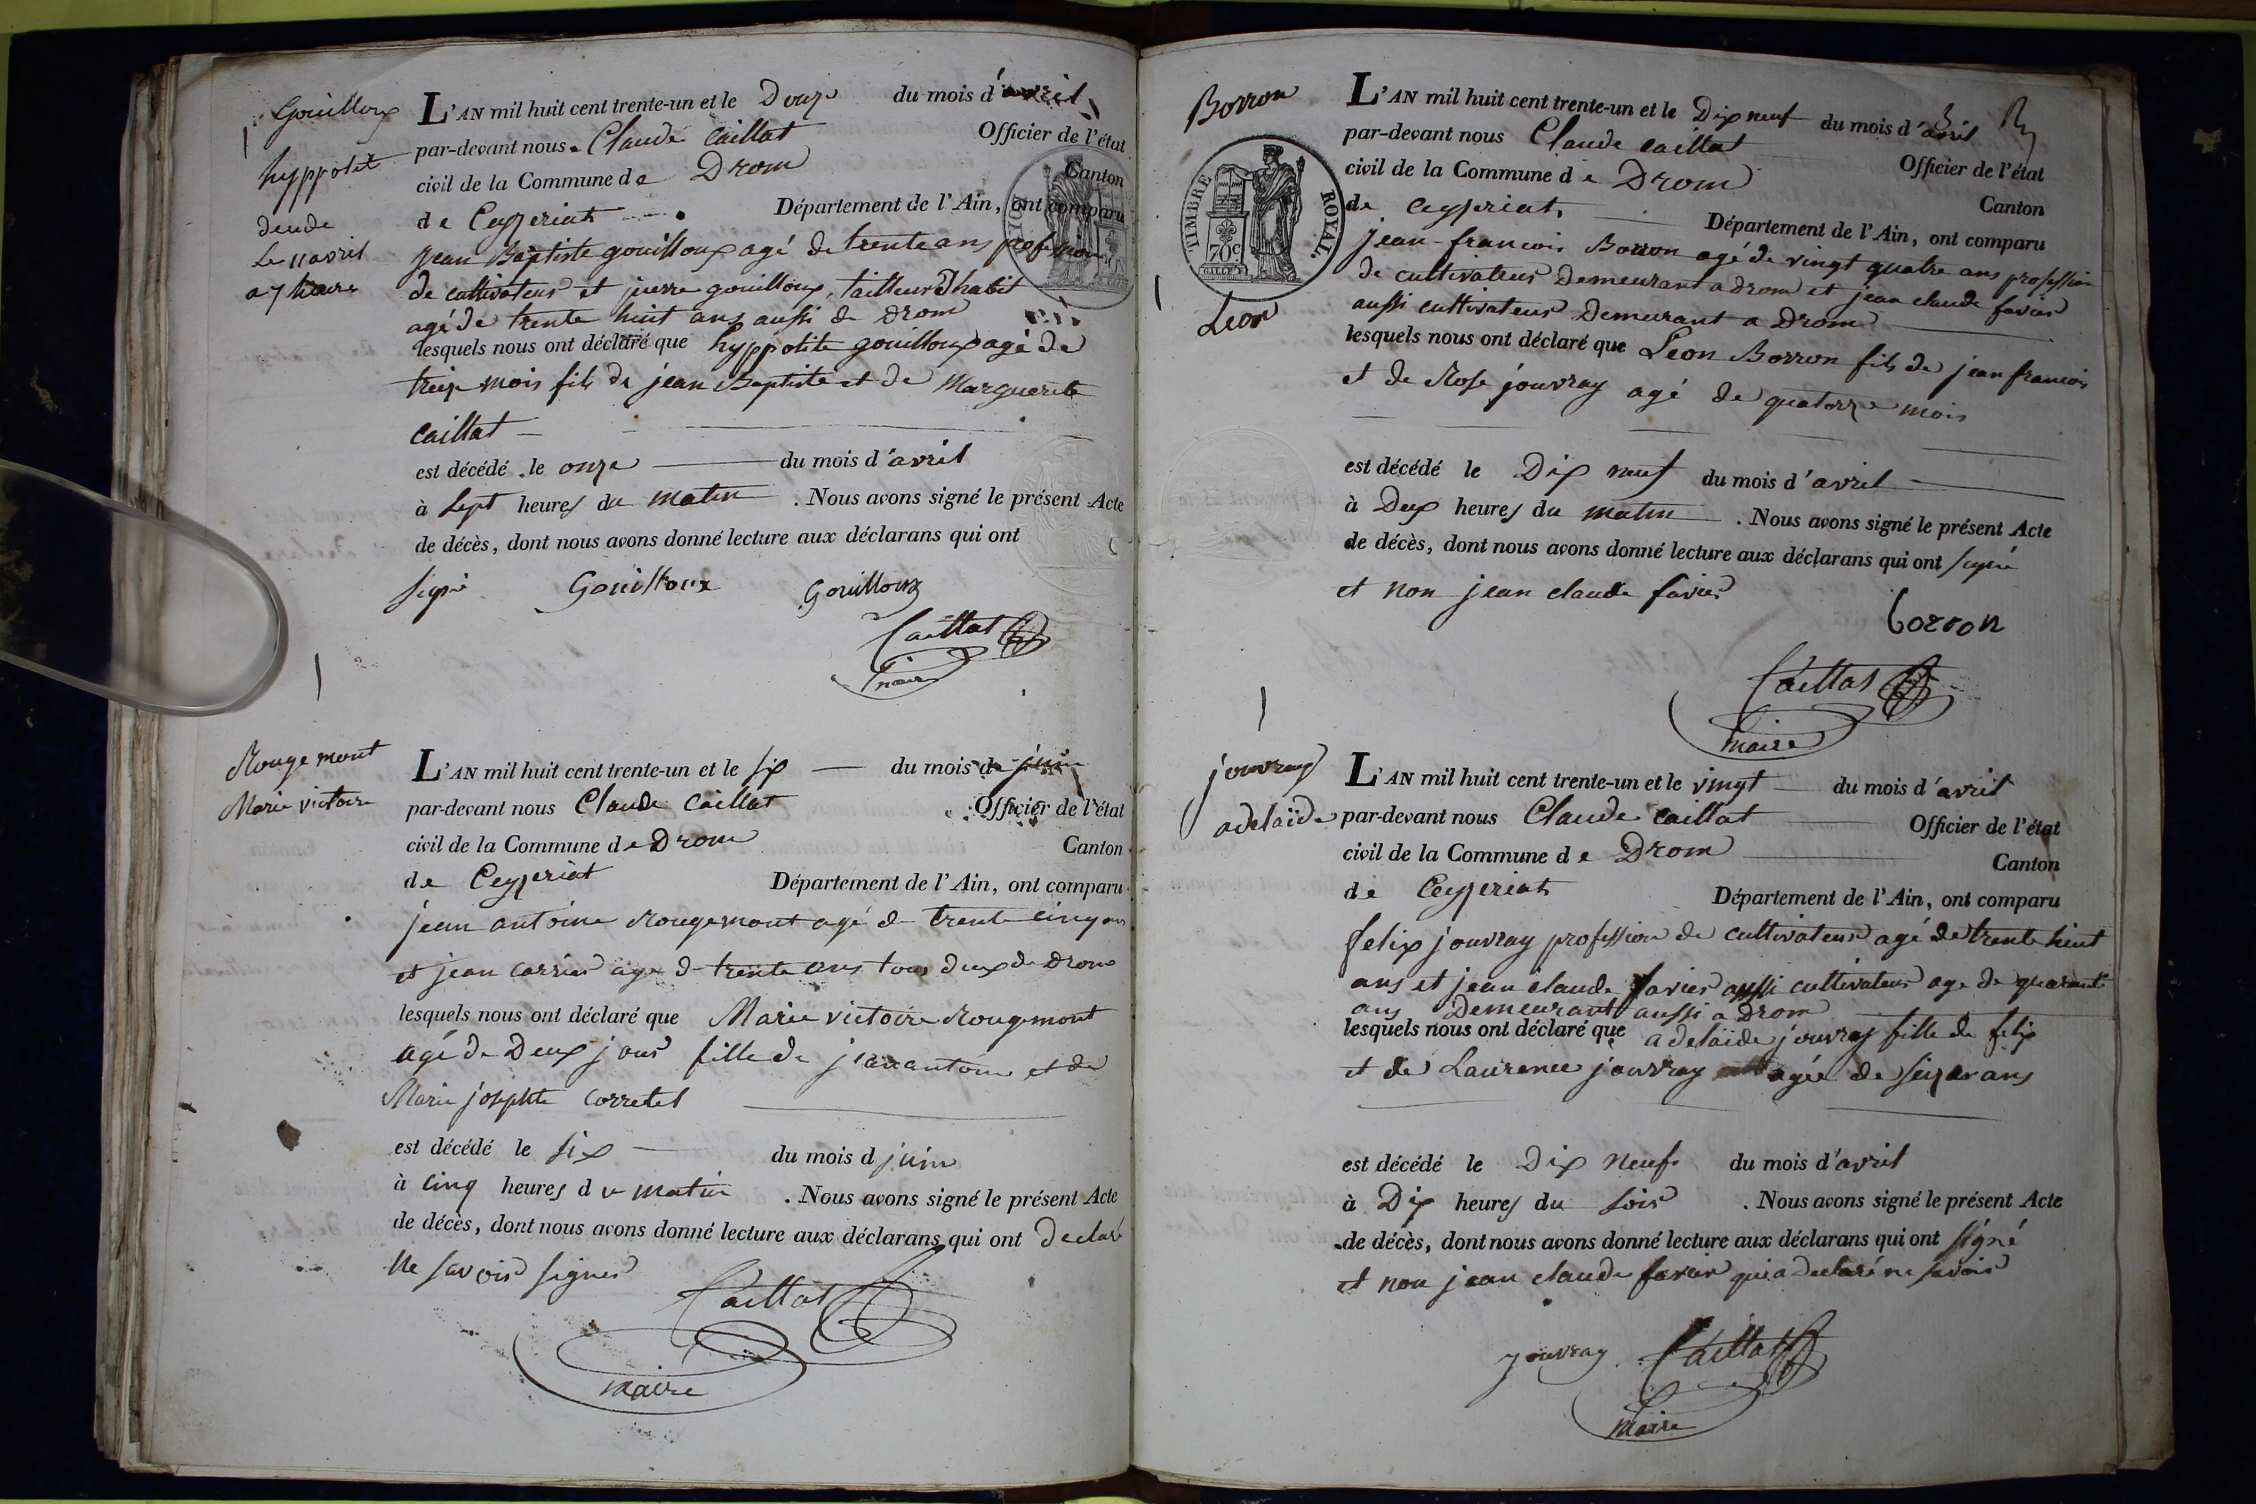 Gouilloux
hyppolite
decede
Le 11 avril
a 7 heure
L'AN mil huit cent trente-un et le Douze du mois d'avril
par-devant nous Claude Caillat Officier de l'état
civil de la Commune de Drom Canton
de Ceyzeriat Département de l'Ain, ont comparu
jean Baptiste gouilloux agé de trente ans profession
de cultivateur et pierre gouilloux, tailleur d'habit
agé de trente huit ans aussi de Drom
lesquels nous ont déclaré que hyppolite gouilloux agé de
treize mois fils de jean Baptiste et de Marguerite
Caillat
est décédé le onze du mois d'avril
à Sept heures du matin. Nous avons signé le présent Acte
de décès, dont nous avons donné lecture aux déclarans qui ont
signé Gouilloux Gouilloux
Caillat
maire
Rougemont
Marie victoire
L'AN mil huit cent trente-un et le six du mois de juin
par-devant nous Claude Caillat Officier de l'état
civil de la Commune de Drom Canton
de Ceyzeriat Département de l'Ain, ont comparu
jean antoine Rougemont agé de trente cinq ans
et jean carrier agé de trente ans tous deux de Drom
lesquels nous ont déclaré que Marie victoire Rougemont
agé de Deux jour fille de jean antoine et de
Marie josephte Corretel
est décédé le six du mois d juin
à cinq heures du matin. Nous avons signé le présent Acte
de décès, dont nous avons donné lecture aux déclarans qui ont declaré
ne savoir signer
Caillat
maire
Borron
TIMBRE ROYAL
70 c
Leon
L'AN mil huit cent trente-un et le Dix neuf du mois d'avril
par-devant nous Claude Caillat Officier de l'état
civil de la Commune de Drom Canton
de Ceyzeriat Département de l'Ain, ont comparu
jean-francois Borron agé de vingt quatre ans profession
de cultivateur Demeurant a Drom et jean claude favier
aussi cultivateur Demeurant a Drom
lesquels nous ont déclaré que Leon Borron fils de jean francois
et de Rose jouvray agé de quatorze mois
est décédé le Dix neuf du mois d'avril
à Deux heures du matin. Nous avons signé le présent Acte
de décès, dont nous avons donné lecture aux déclarans qui ont signé
et non jean claude favier
borron
Caillat
maire
jouvray
adelaïde
L'AN mil huit cent trente-un et le vingt du mois d'avril
par-devant nous Claude Caillat Officier de l'état
civil de la Commune de Drom Canton
de Ceyzeriat Département de l'Ain, ont comparu
felix jouvray profession de cultivateur agé de trente huit
ans et jean claude favier aussi cultivateur agé de quarante
ans Demeurant aussi a Drom
lesquels nous ont déclaré que adelaïde jouvray fille de felix
et de Laurence jouvray agée de seize ans
est décédé le Dix neuf du mois d'avril
à Dix heures du soir. Nous avons signé le présent Acte
de décès, dont nous avons donné lecture aux déclarans qui ont signé
et non jean claude favier qui a declaré ne savoir
jouvray Caillat
Maire